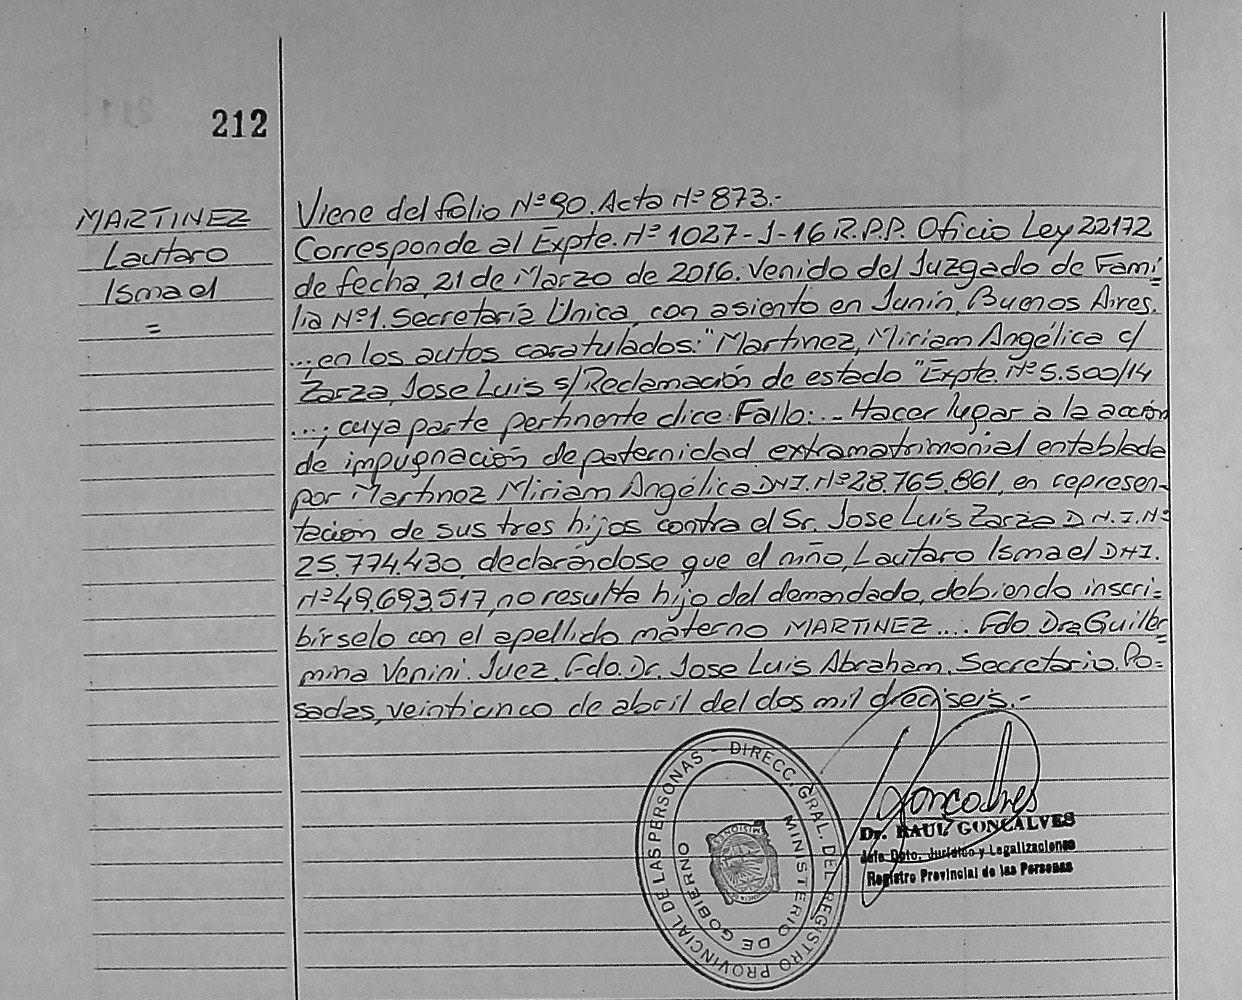 212
MARTINEZ
Lautaro
Ismael
=
Viene del folio Nº 90. Acta Nº 873.-
Corresponde al Expte. Nº 1027-J-16 R.P.P. Oficio Ley 22172
de fecha, 21 de Marzo de 2016. Venido del Juzgado de Fami=
lia Nº1. Secretaría Única, con asiento en Junín, Buenos Aires.
...; en los autos caratulados: "Martinez, Miriam Angélica c/
Zarza, Jose Luis s/Reclamación de estado "Expte. Nº 5.500/14
...; cuya parte pertinente dice: Fallo: ..- Hacer lugar a la acción
de impugnación de paternidad extramatrimonial entablada
por Martinez Miriam Angélica DNI. Nº 28.765.861, en represen-
tación de sus tres hijos contra el Sr. Jose Luis Zarza D.N.I. Nº
25.774.430, declarándose que el niño, Lautaro Ismael DNI.
Nº 49.693.517, no resulta hijo del demandado, debiendo inscri-
birselo con el apellido materno MARTINEZ .... Fdo Dra Guiller
mina Venini. Juez. Fdo. Dr. Jose Luis Abraham. Secretario. Po=
sadas, veinticinco de abril del dos mil dieciseis.-
DIRECC. GRAL. DEL REGISTRO PROVINCIAL DE LAS PERSONAS -
MINISTERIO DE GOBIERNO
Goncalves
Dr. RAUL GONCALVES
Jefe Dpto. Jurídico y Legalizaciones
Registro Provincial de las Personas